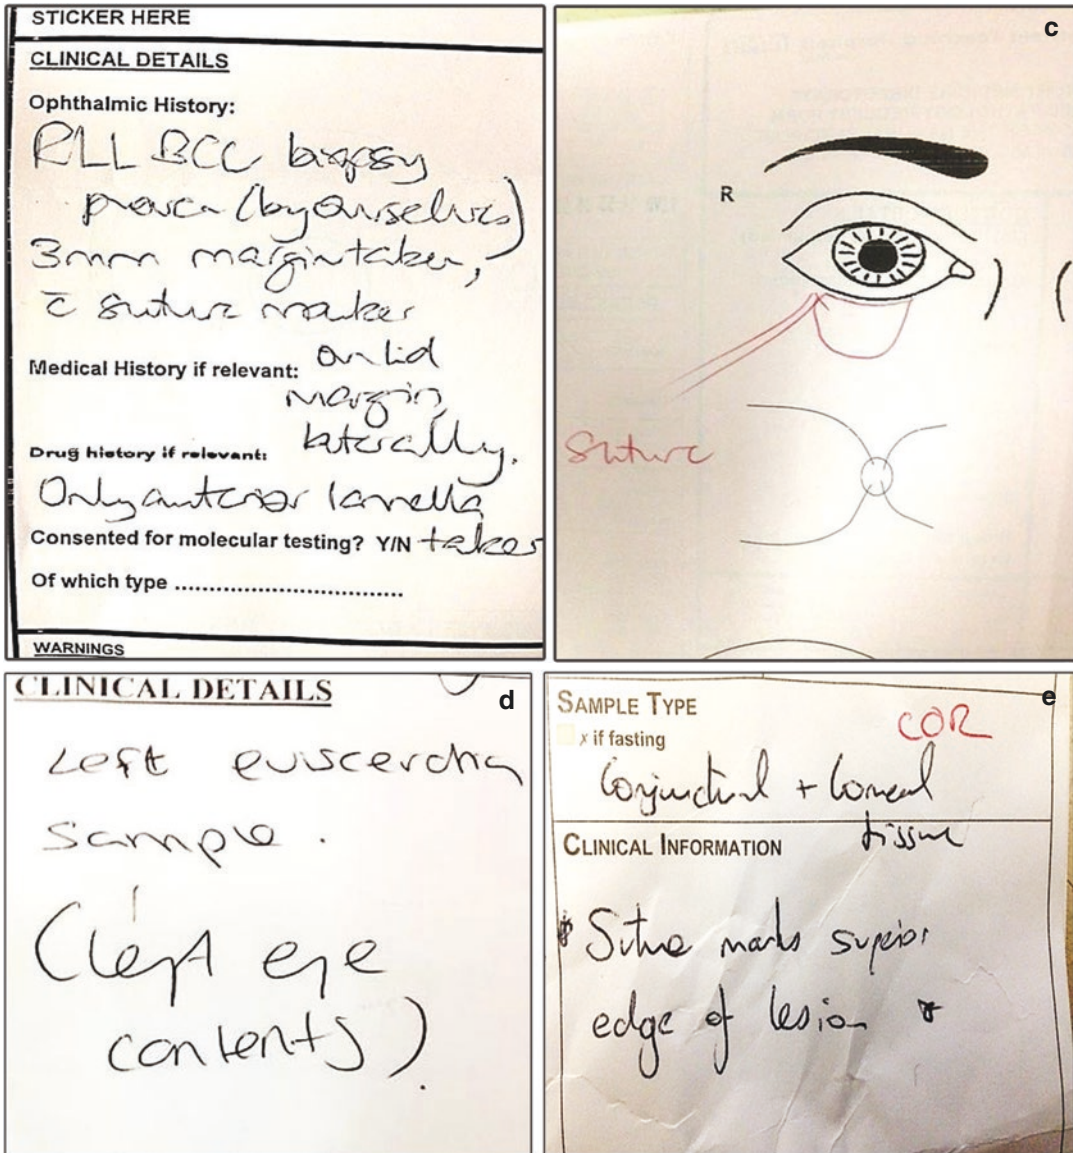 STICKER HERE
CLINICAL DETAILS
Ophthalmic History:
RLL BCC biopsy
proven (by ourselves)
3mm margin taken,
c̄ suture marker
Medical History if relevant: on lid
margin
laterally.
Drug history if relevant:
Only anterior lamella
Consented for molecular testing? Y/N taken
Of which type ....................................
WARNINGS
c
R
Suture
CLINICAL DETAILS
d
Left evisceration
sample.
(left eye
contents).
SAMPLE TYPE
e
COR
x if fasting
Conjunctival + Corneal
tissue
CLINICAL INFORMATION
* Suture marks superior
edge of lesion *